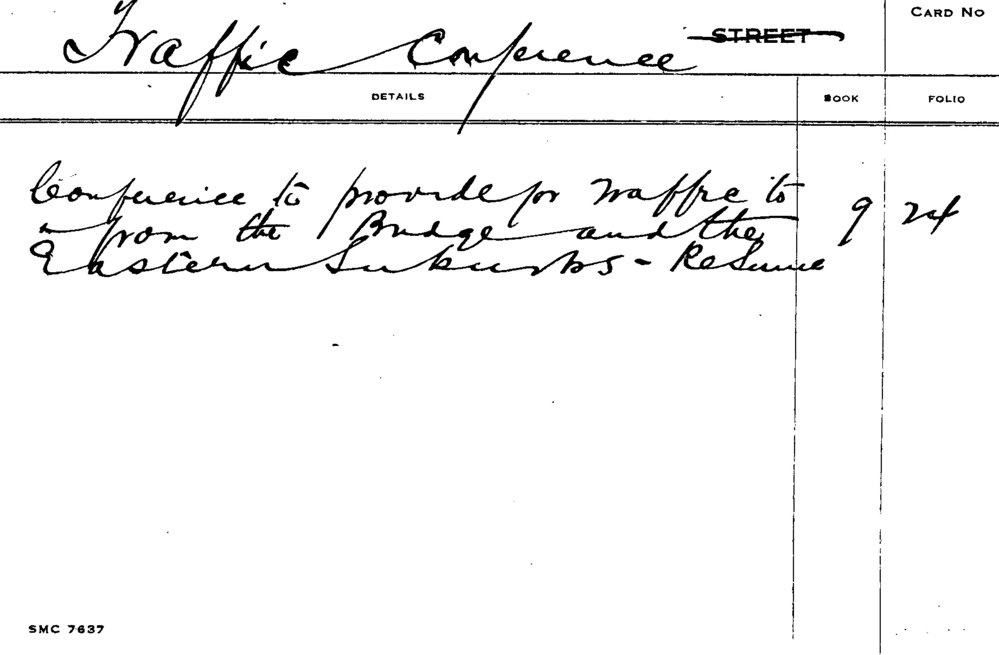 CARD NO
Traffic Conference STREET
DETAILS BOOK FOLIO
Conference to provide for traffic to
from the Bridge and the 9 24
Eastern Suburbs - Resume
SMC 7637